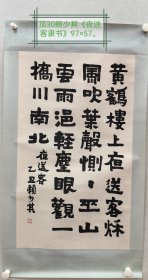 顶30赖少其《夜送
客隶书》97×57。
黄鹤楼上夜送客秋
风吹叶声恻＝巫山
云雨浥轻尘眼观一
桥川南北 夜送客
乙丑赖少其